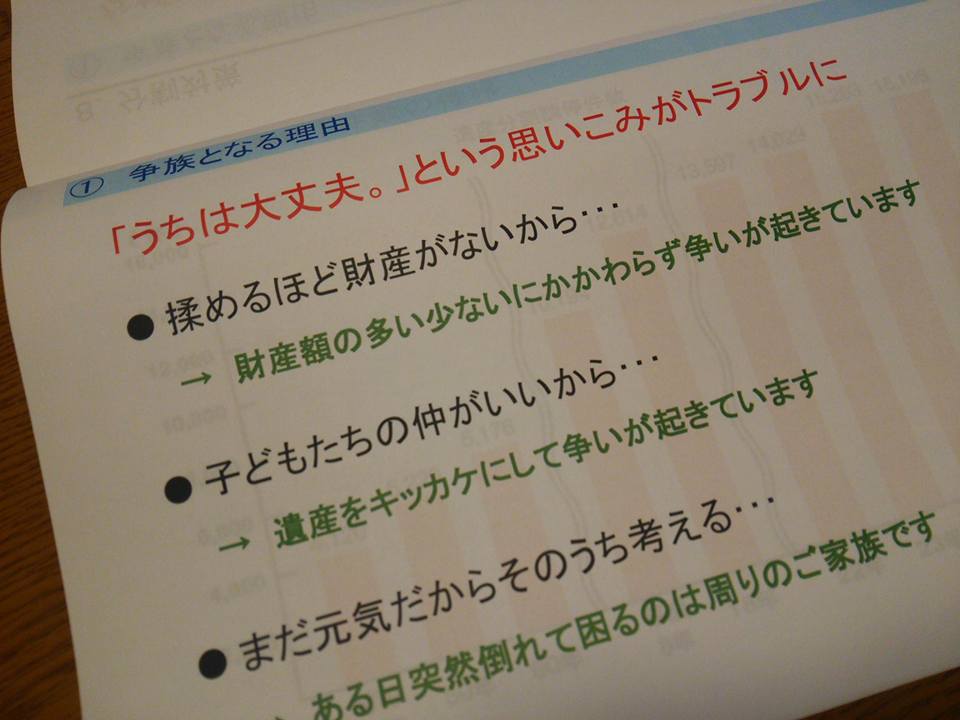 ① 争族となる理由
「うちは大丈夫。」という思いこみがトラブルに
● 揉めるほど財産がないから…
→ 財産額の多い少ないにかかわらず争いが起きています
● 子どもたちの仲がいいから…
→ 遺産をキッカケにして争いが起きています
● まだ元気だからそのうち考える…
→ ある日突然倒れて困るのは周りのご家族です